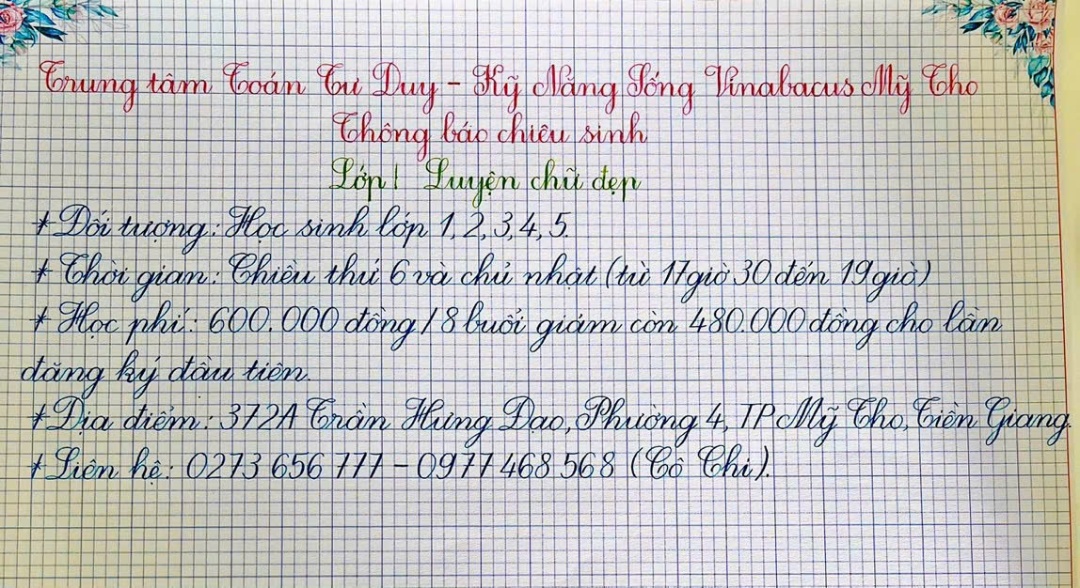 Trung tâm Toán Tư Duy - Kỹ Năng Sống Vinabacus Mỹ Tho
Thông báo chiêu sinh
Lớp! Luyện chữ đẹp
* Đối tượng: Học sinh lớp 1, 2, 3, 4, 5.
* Thời gian: Chiều thứ 6 và chủ nhật (từ 17 giờ 30 đến 19 giờ)
* Học phí: 600.000 đồng / 8 buổi giảm còn 480.000 đồng cho lần
đăng ký đầu tiên.
* Địa điểm: 372A Trần Hưng Đạo, Phường 4, TP Mỹ Tho, Tiền Giang.
* Liên hệ: 0273 656 777 - 0977 468 568 (Cô Chi).